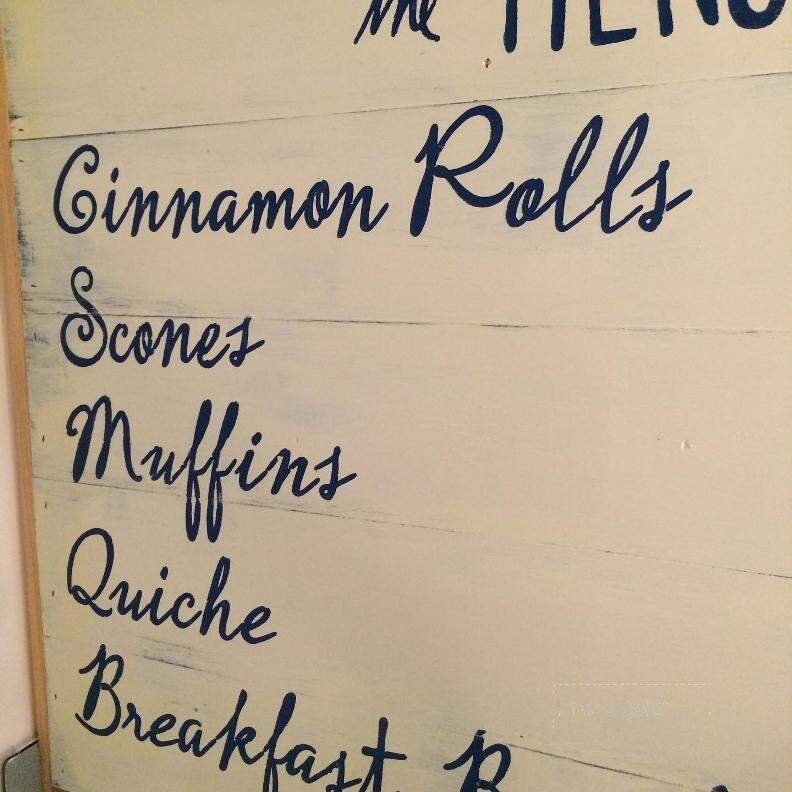 the MENU
Cinnamon Rolls
Scones
Muffins
Quiche
Breakfast